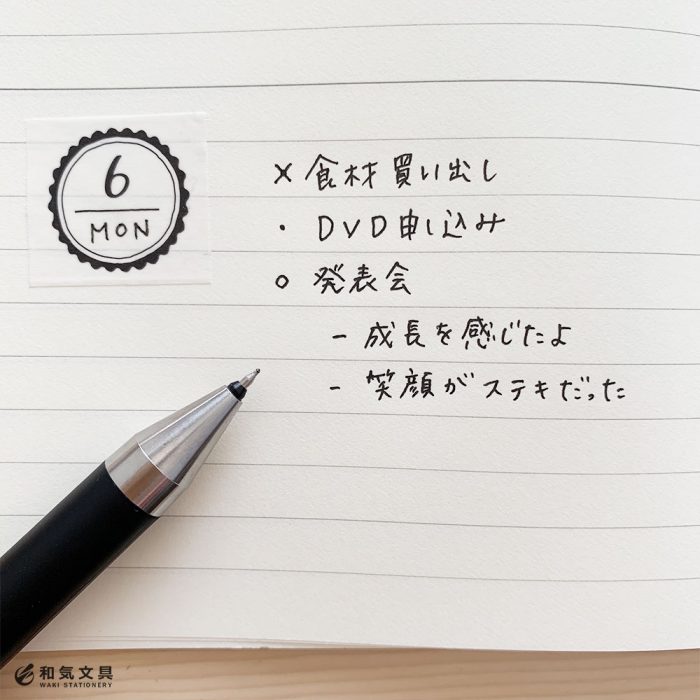 6
MON
× 食材買い出し
・ DVD申し込み
○ 発表会
－ 成長を感じたよ
－ 笑顔がステキだった
和気文具
WAKI STATIONERY